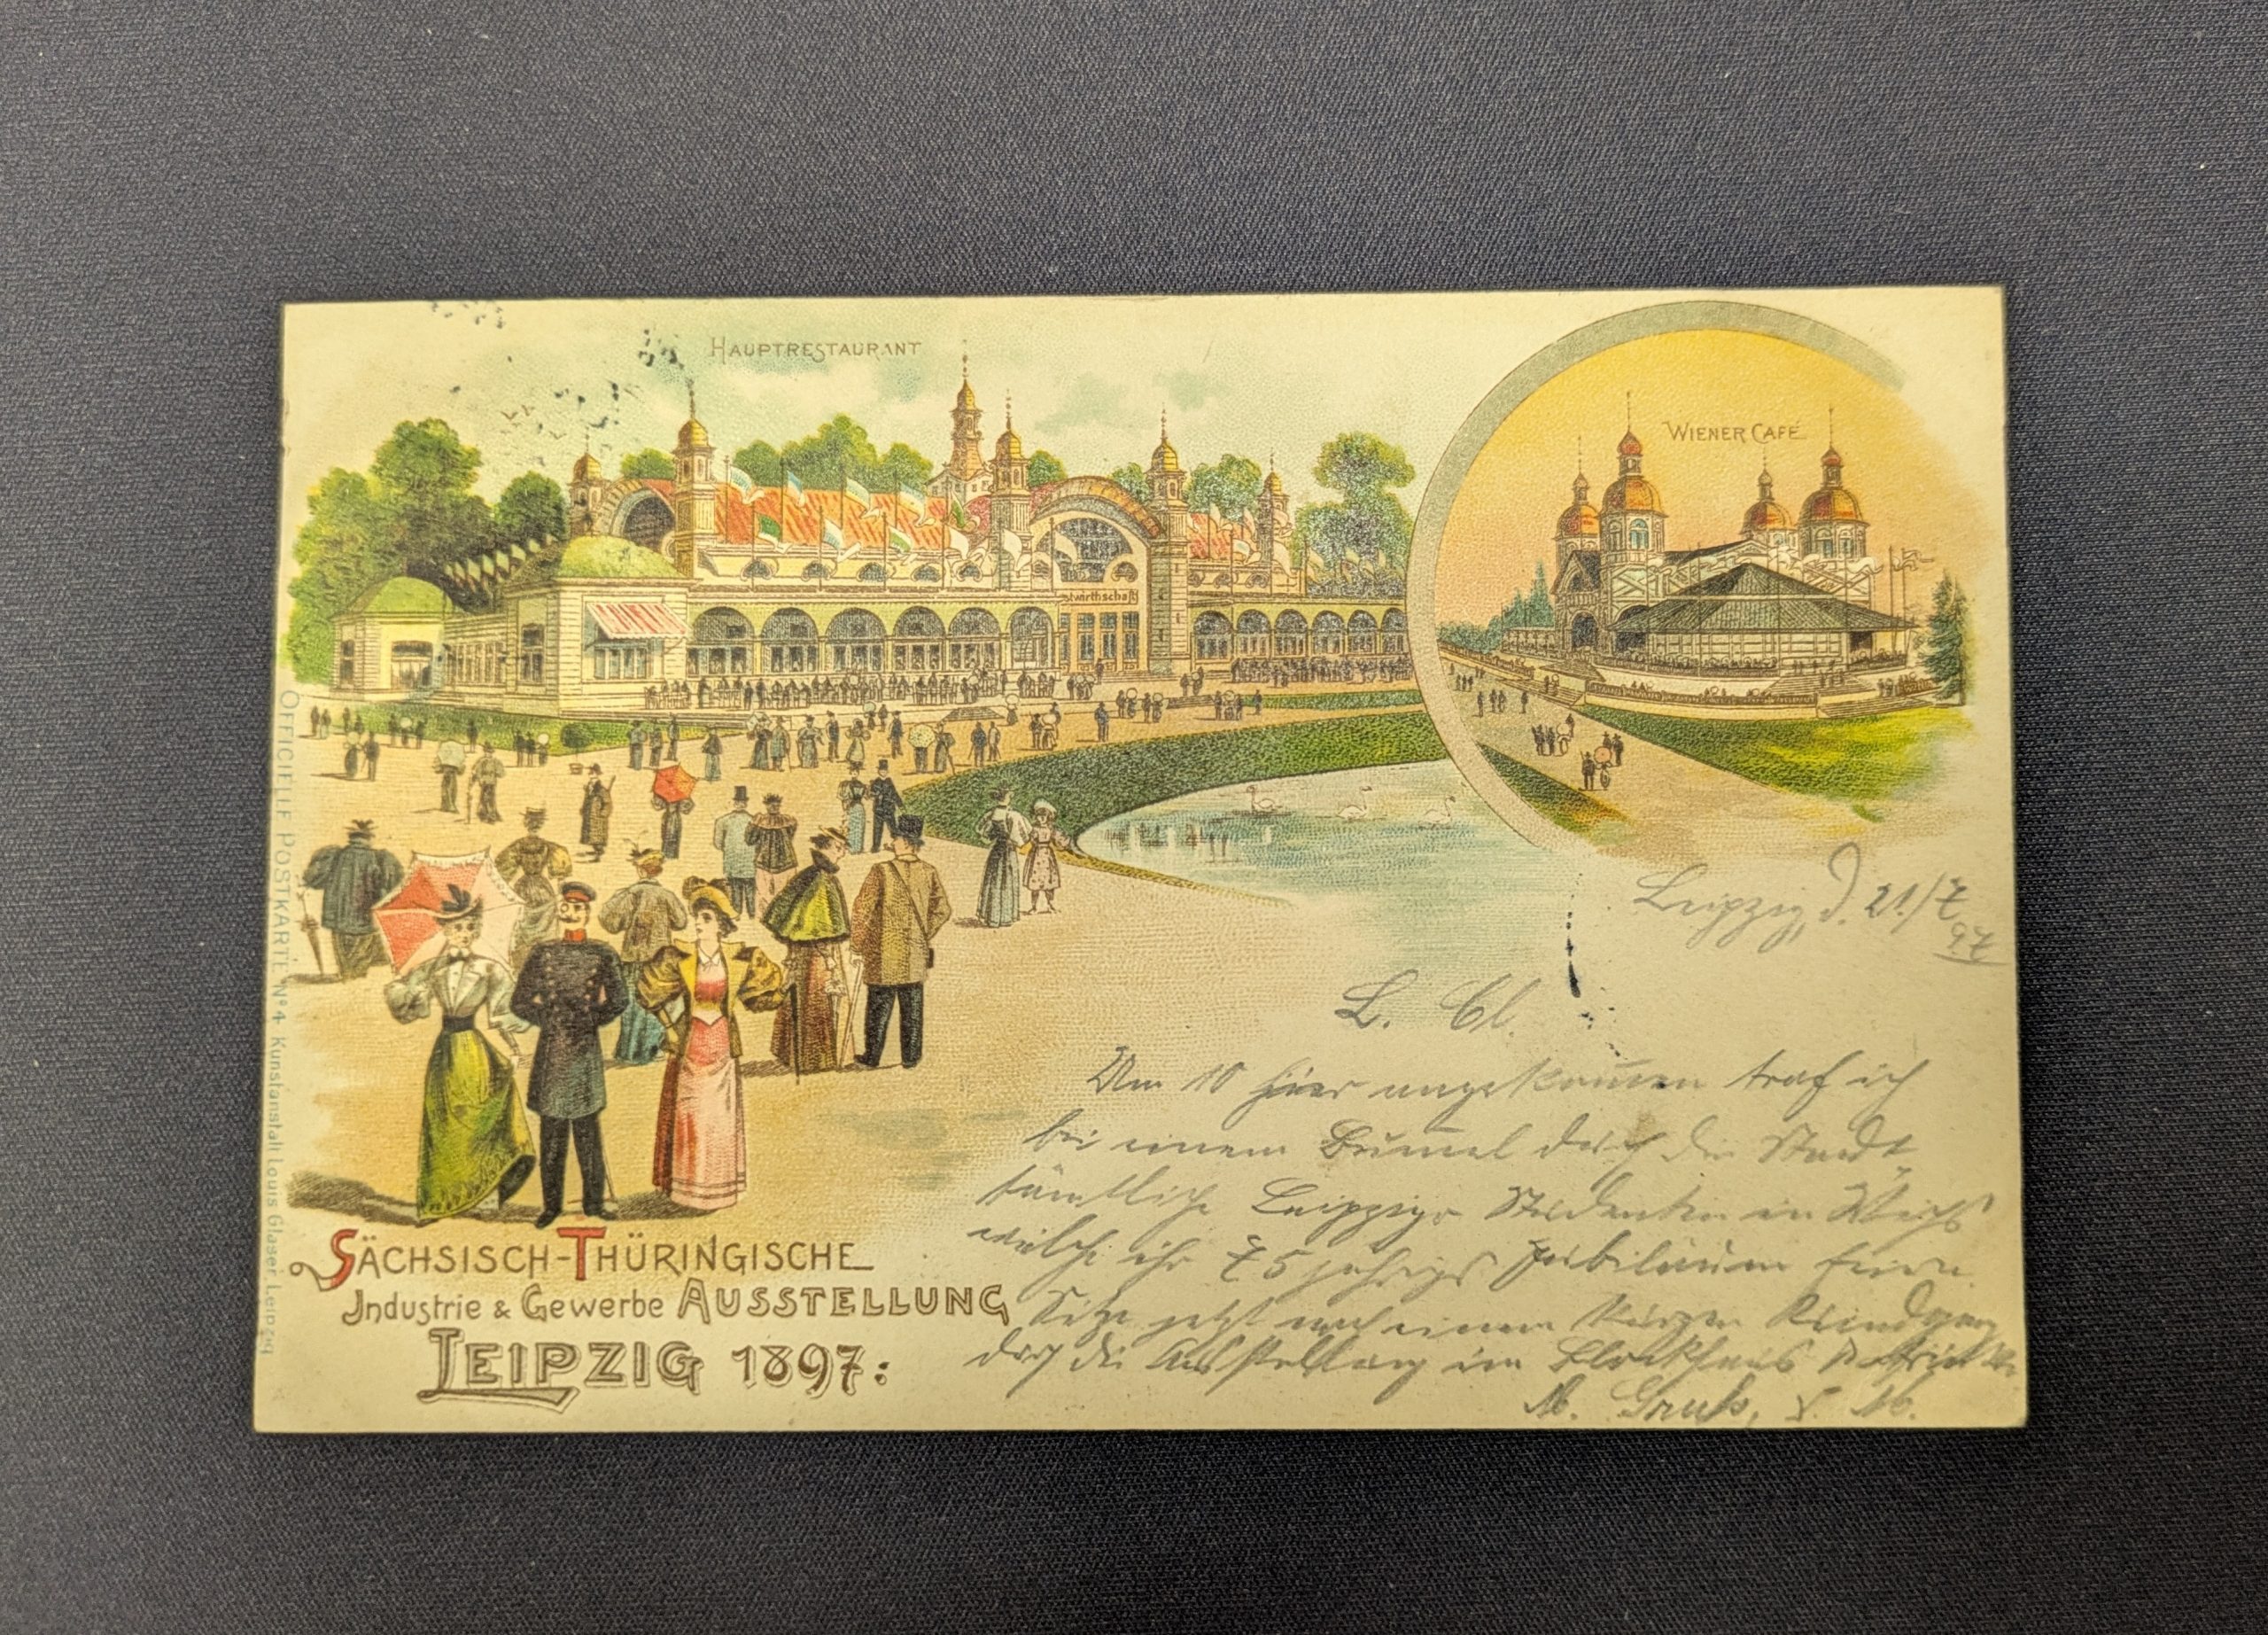 HAUPTRESTAURANT
WIENER CAFÉ
twirthschaft
OFFICIELLE POSTKARTE Nº 4 Kunstanstalt Louis Glaser, Leipzig
Leipzig, d. 21./7
97
L. Cl.
Um 10 hier angekommen traf ich
bei einem Bummel durch die Stadt
sämtliche Leipziger Studenten in Wichs
welche ihr 75 jähriges Jubiläum feiern.
Sitze jetzt nach einem kurzen Rundgang
durch die Ausstellung im Blockhaus
M. Gruß, S. M.
SÄCHSISCH-THÜRINGISCHE
Industrie & Gewerbe AUSSTELLUNG
LEIPZIG 1897: